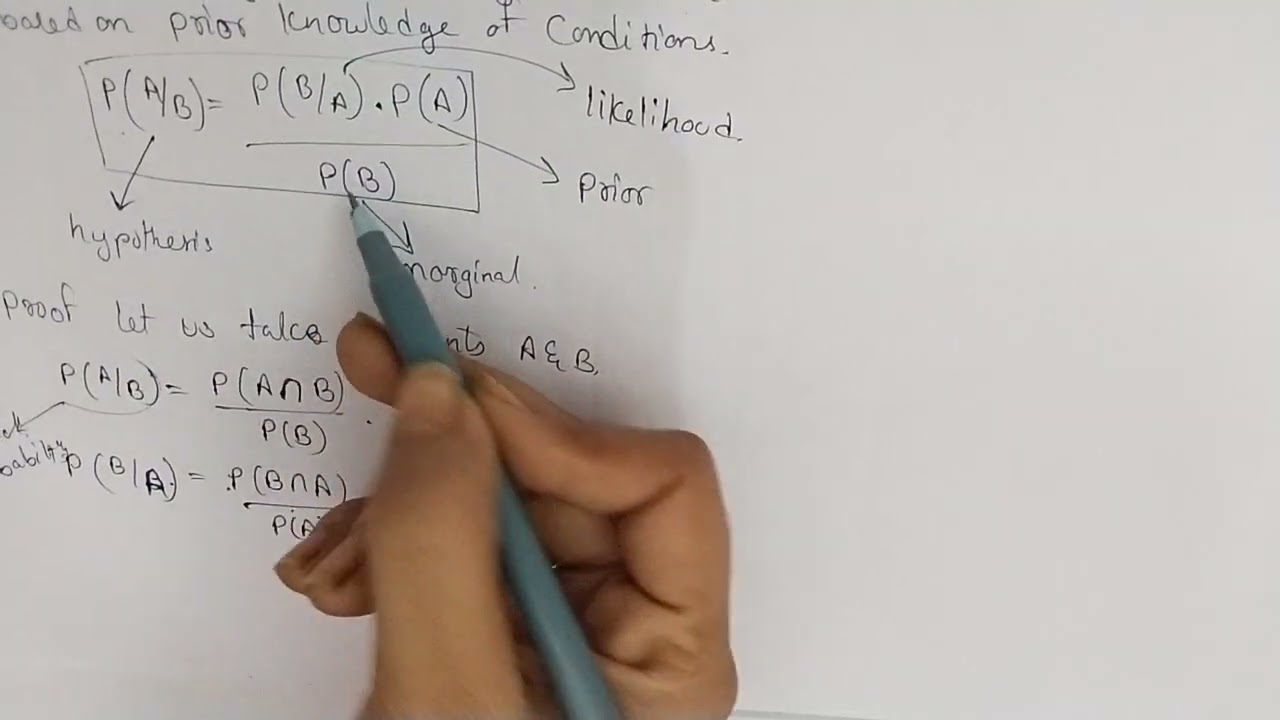 based on prior knowledge of Conditions.
P(A/B) = P(B/A) . P(A)
P(B)
likelihood.
prior
hypothesis
marginal.
Proof let us take A & B.
P(A/B) = P(A∩B)
P(B)
P(B/A) = P(B∩A)
P(A